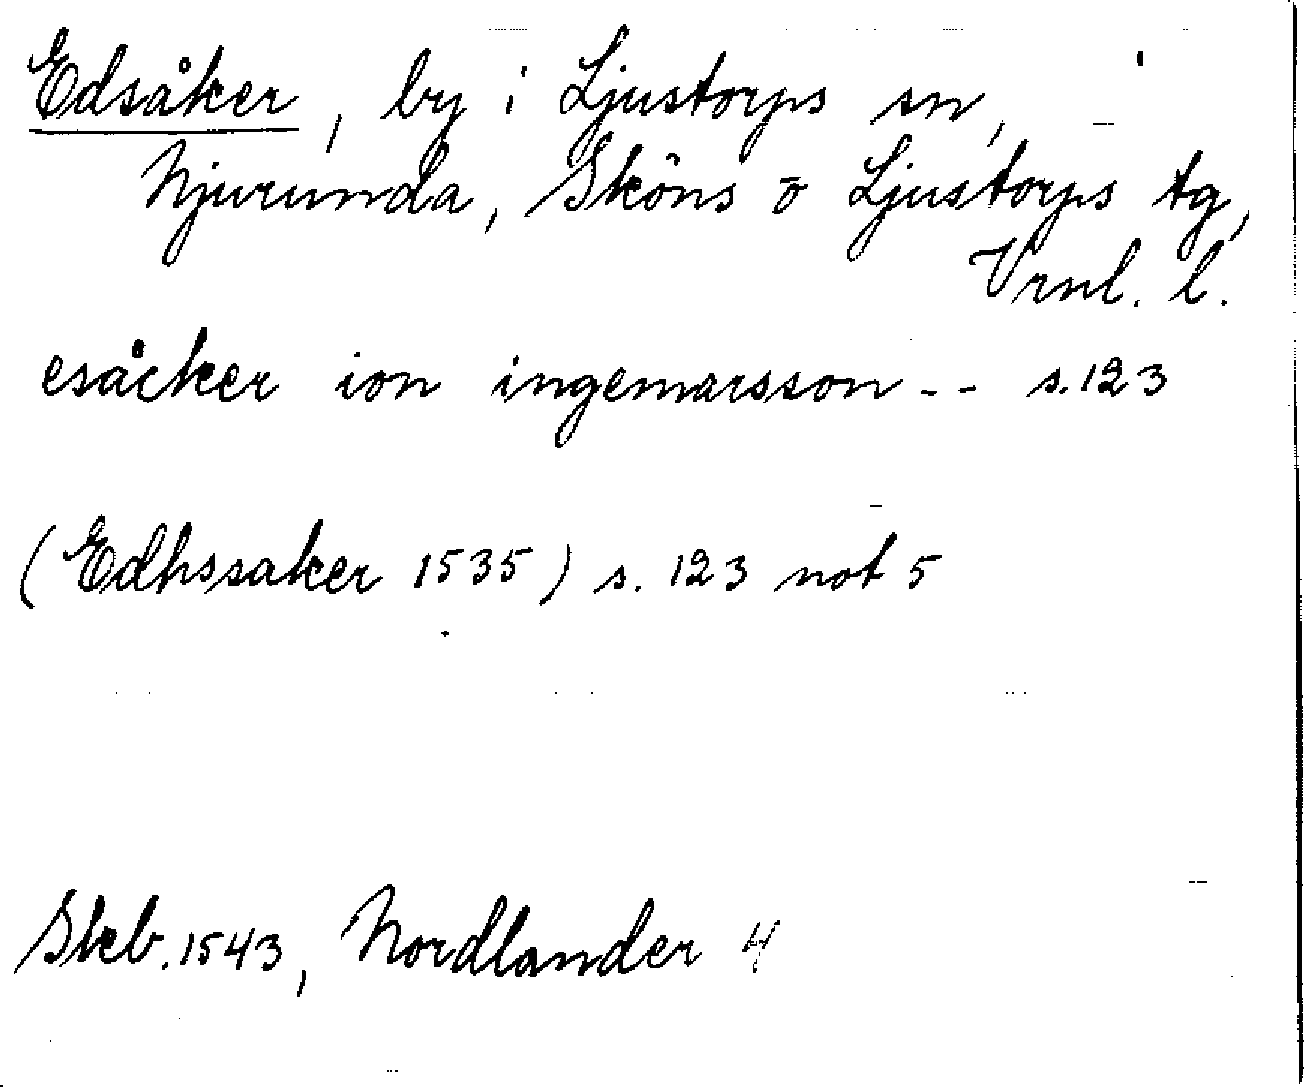 Edsåker, by i Ljustorps sn,
Njurunda, Sköns o Ljustorps tg,
Vrnl. l.
esåcker ion ingemarsson - - s. 123
(Edhssaker 1535) s. 123 not 5
Skb. 1543, Nordlander 4